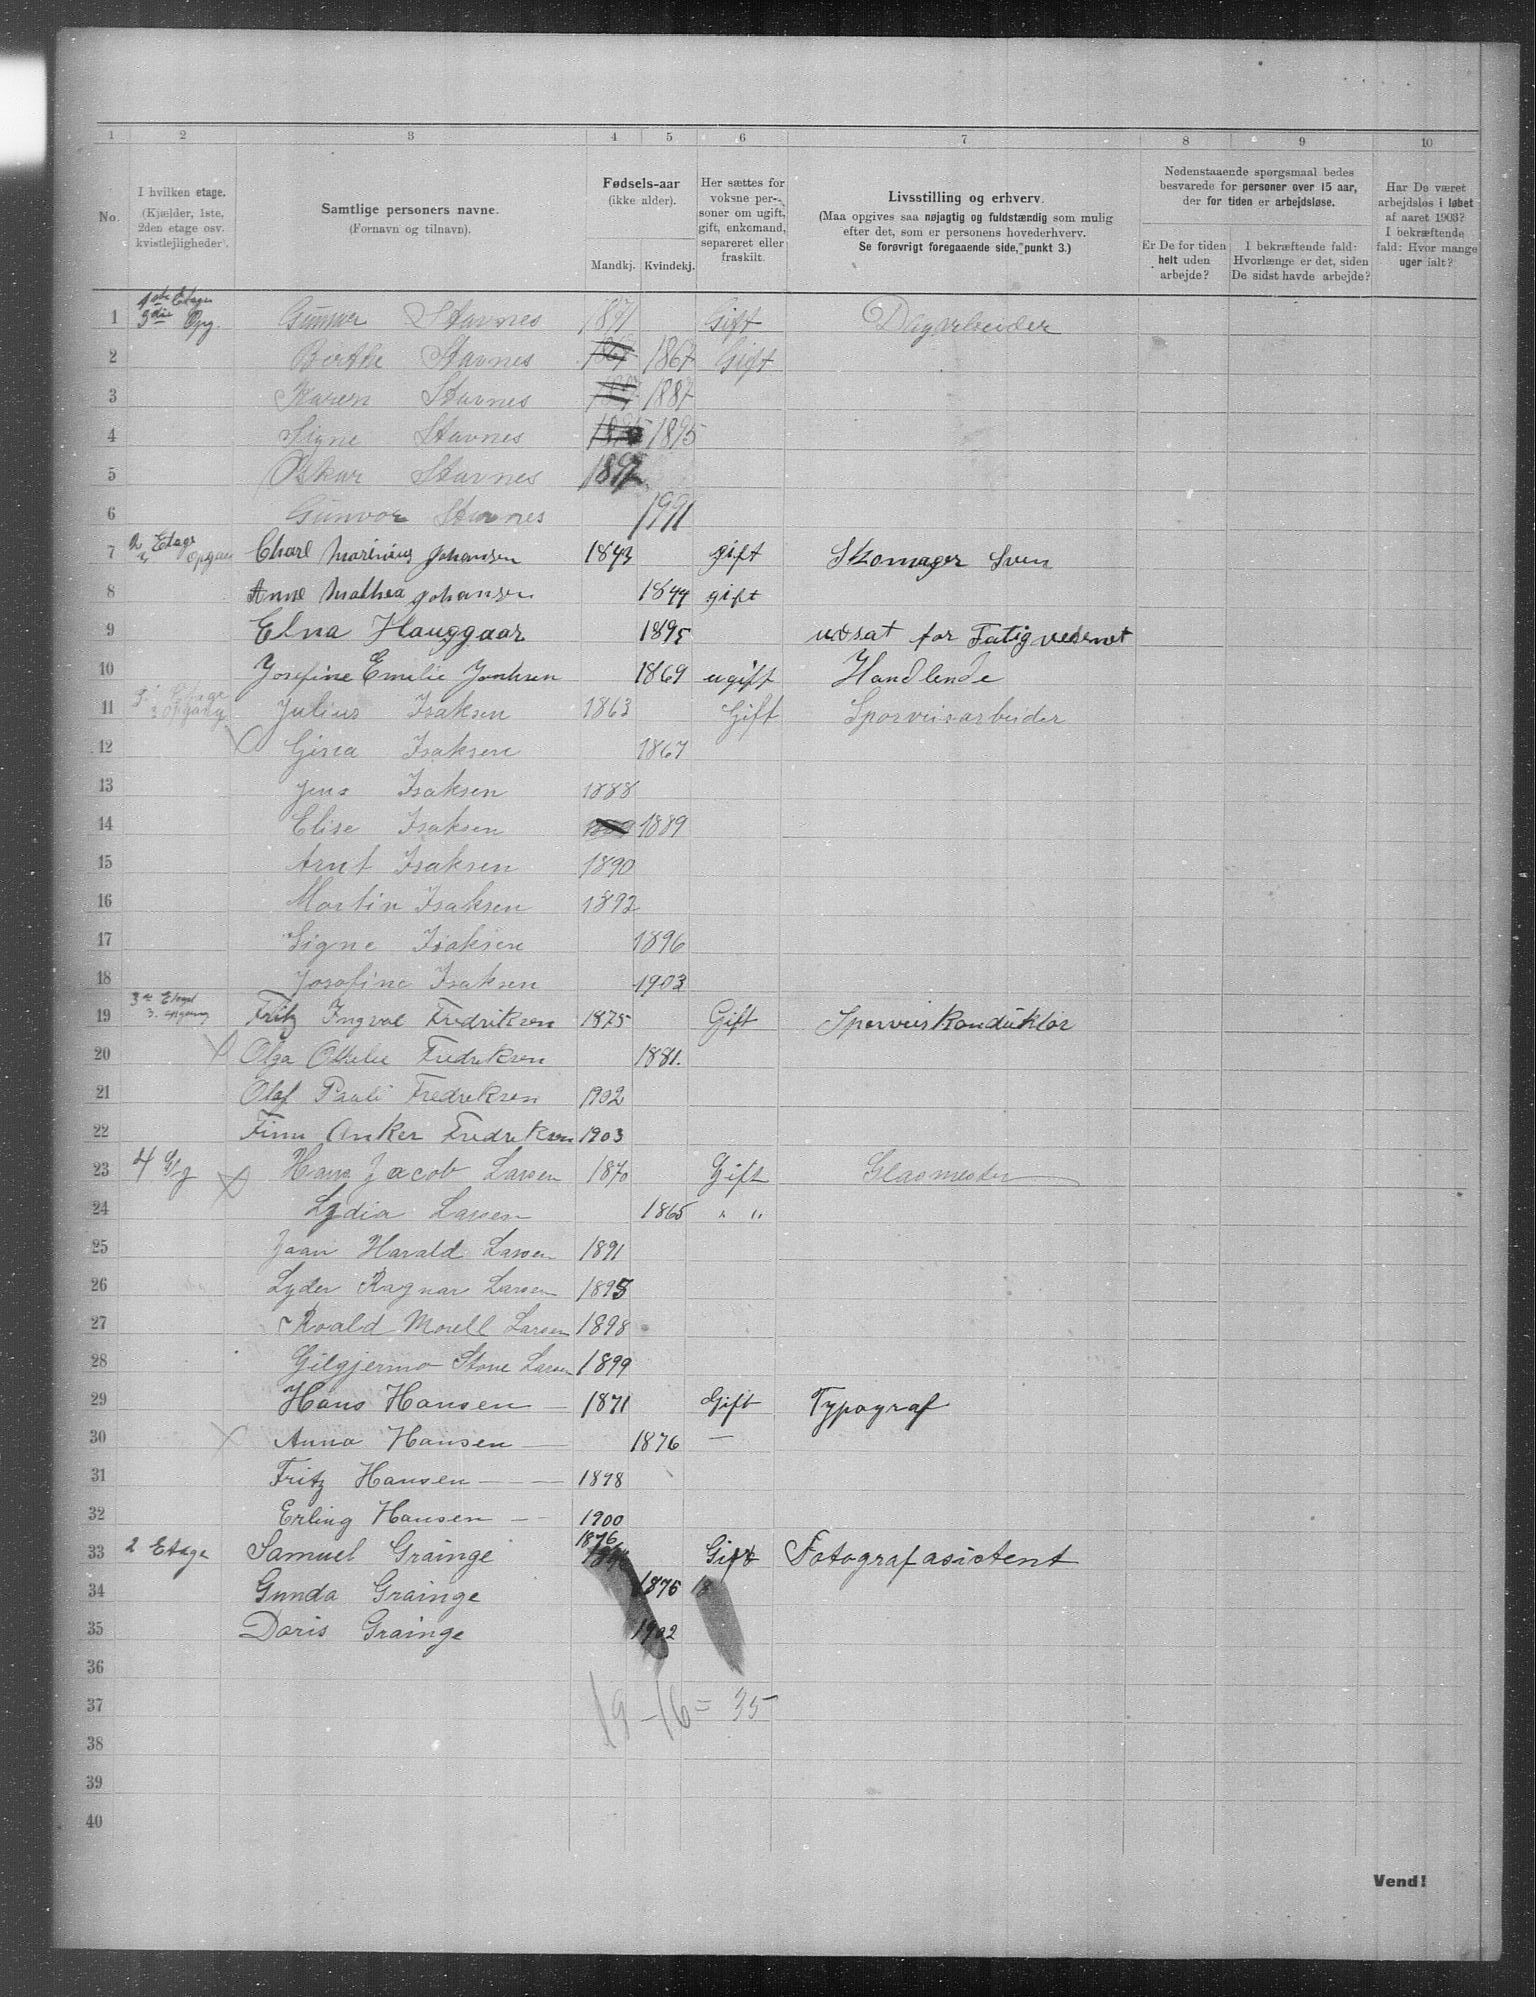 1 2 3 4 5 6 7 8 9 10
No.
I hvilken etage.
(Kjælder, 1ste,
2den etage osv.
kvistleiligheder).
Samtlige personers navne.
(Fornavn og tilnavn).
Fødsels-aar
(ikke alder).
Mandkj. Kvindekj.
Her sættes for
voksne per-
soner om ugift,
gift, enkemand,
separeret eller
fraskilt.
Livsstilling og erhverv.
(Maa opgives saa nøjagtig og fuldstændig som mulig
efter det, som er personens hovederhverv.
Se forøvrigt foregaaende side, punkt 3.)
Nedenstaaende spørgsmaal bedes
besvarede for personer over 15 aar,
der for tiden er arbejdsløse.
Er De for tiden
helt uden
arbejde?
I bekræftende fald:
Hvorlænge er det, siden
De sidst havde arbejde?
Har De været
arbejdsløs i løbet
af aaret 1903?
I bekræftende
fald: Hvor mange
uger ialt?
1 1ste Etage 3die Opg. Gunnar Stavnes 1871 Gift Dagarbeider
2 Berthe Stavnes 1867 1867 Gift
3 Karen Stavnes 1887 1887
4 Signe Stavnes 1895 1895
5 Oskar Stavnes 1897
6 Gunvor Stavnes 1991
7 2 Etage Opgan Charl Marinius Johansen 1843 gift Skomager Sven
8 Anne Mathea Johansen 1844 gift
9 Elna Hauggaar 1895 udsat for Fatigvesenet
10 Josefine Emilie Jonhsen 1869 ugift Handlende
11 Etage 3 Opgang Julius Isaksen 1863 Gift Sporveisarbeider
12 Gina Isaksen 1867
13 Jens Isaksen 1888
14 Elise Isaksen 1889 1889
15 Arnt Isaksen 1890
16 Martin Isaksen 1892
17 Signe Isaksen 1896
18 Josefine Isaksen 1903
19 3de Etage 3. opgang Fritz Ingval Fredriksen 1875 Gift Sporveiskonduktør
20 Olga Othelie Fredriksen 1881.
21 Olaf Pauli Fredriksen 1902
22 Finn Anker Fredriksen 1903
23 4 Etg Hans Jacob Larsen 1870 Gift Glasmester
24 Lydia Larsen 1865 " "
25 Jaan Harald Larsen 1891
26 Lyder Ragnar Larsen 1895
27 Roald Morell Larsen 1898
28 Gilgjermo Stone Larsen 1899
29 Hans Hansen — 1871 Gift Typograf
30 Anna Hansen — 1876 —
31 Fritz Hansen — — — 1898
32 Erling Hansen — — 1900
33 2 Etage Samuel Grainge 1876 Gift Fotografasistent
34 Gunda Grainge 1876 18
35 Doris Grainge 1902
36
37 19 - 16 = 35
38
39
40
Vend!